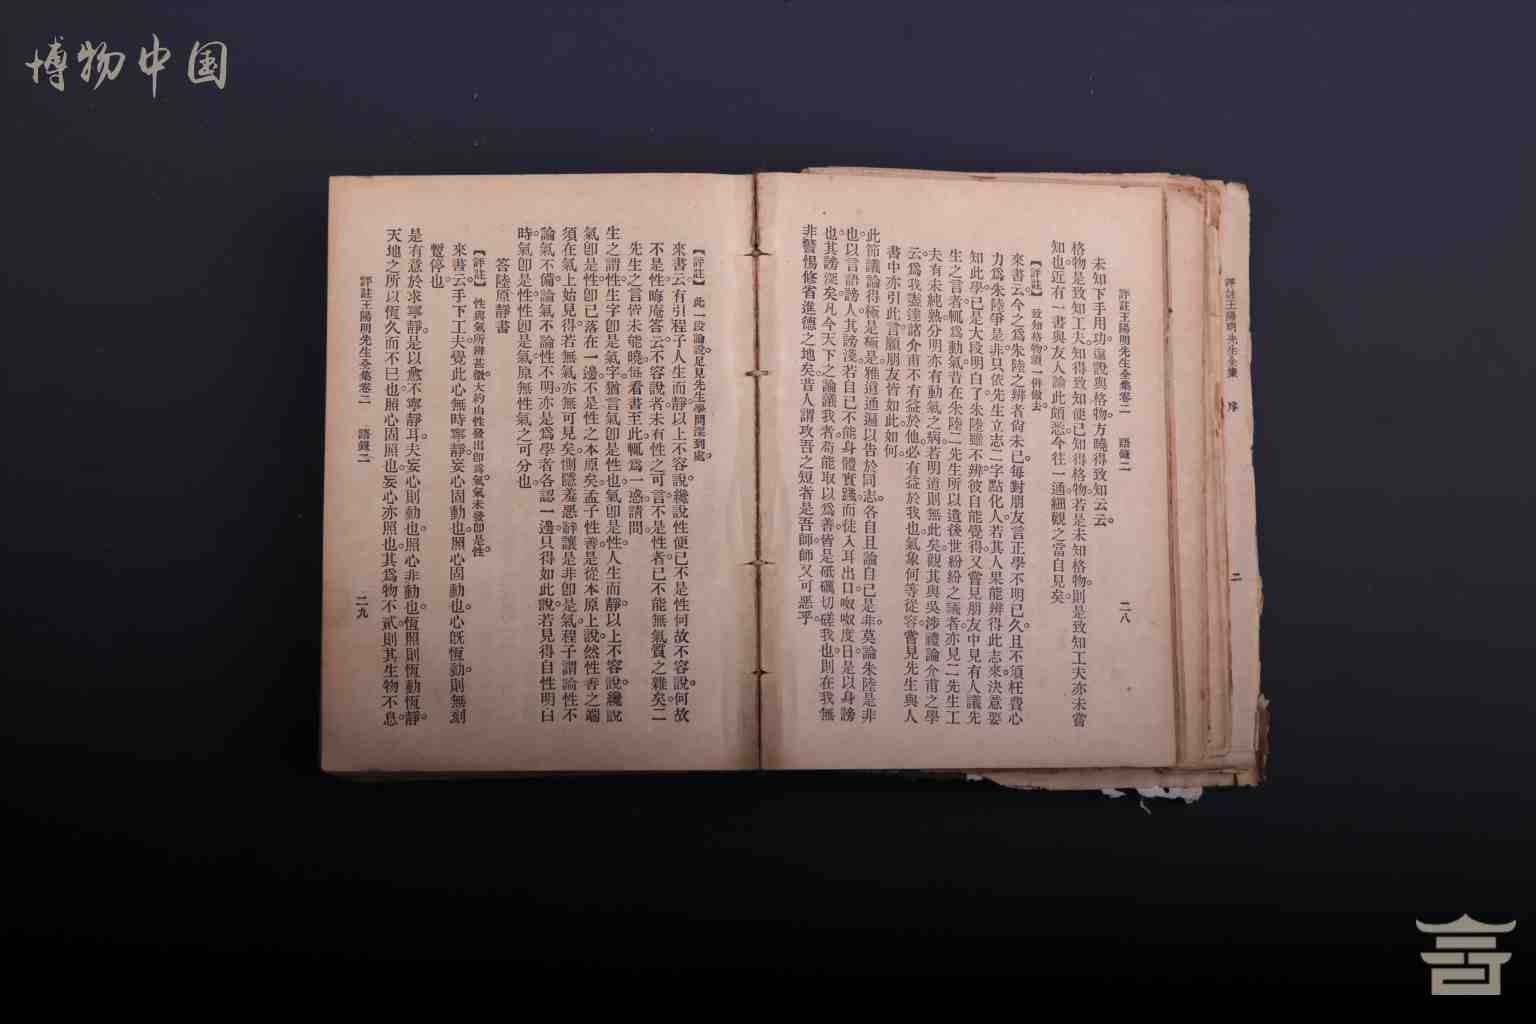 博物中国
評註王陽明先生全集 序 二
評註王陽明先生全集卷二 語錄二 二八
未知下手用功。還說與格物。方曉得致知云云。
格物是致知工夫。知得致知便已知得格物。若是未知格物。則是致知工夫亦未嘗
知也。近有一書與友人論此頗悉。今往一通。細觀之當自見矣。
【評註】致知格物須一併做去。
來書云。今之爲朱陸之辨者尙未已。每對朋友言正學不明已久。且不須枉費心
力爲朱陸爭是非。只依先生立志二字點化人。若其人果能辨得此志來。決意要
知此學。已是大段明白了。朱陸雖不辨。彼自能覺得。又嘗見朋友中見有人議先
生之言者。輒爲動氣。昔在朱陸二先生所以遺後世紛紛之議者。亦見二先生工
夫有未純熟分明。亦有動氣之病。若明道則無此矣。觀其與吳涉禮論介甫之學
云。爲我盡達諸介甫。不有益於他。必有益於我也。氣象何等從容。嘗見先生與人
書中亦引此言。願朋友皆如此。如何。
此節議論得極是極是。雅道通。遍以告於同志。各自且論自己是非。莫論朱陸是非
也。以言語謗人。其謗淺。若自己不能身體實踐。而徒入耳出口。呶呶度日。是以身謗
也。其謗深矣。凡今天下之論議我者。苟能取以爲善。皆是砥礪切磋我也。則在我無
非警惕修省進德之地矣。昔人謂攻吾之短者是吾師。師又可惡乎。
【評註】此一段論說。足見先生學問深到處。
來書云。有引程子人生而靜以上不容說。纔說性便已不是性。何故不容說。何故
不是性。晦庵答云。不容說者。未有性之可言。不是性者。已不能無氣質之雜矣。二
先生之言皆未能曉。每看書至此。輒爲一惑。請問。
生之謂性。生字卽是氣字。猶言氣卽是性也。氣卽是性。人生而靜以上不容說。纔說
氣卽是性。卽已落在一邊。不是性之本原矣。孟子性善。是從本原上說。然性善之端
須在氣上始見得。若無氣亦無可見矣。惻隱羞惡辭讓是非卽是氣。程子謂論性不
論氣不備。論氣不論性不明。亦是爲學者各認一邊。只得如此說。若見得自性明白
時。氣卽是性。性卽是氣。原無性氣之可分也。
答陸原靜書
【評註】性與氣所辨甚微。大約由性發出卽爲氣。氣未發卽是性。
來書云。手下工夫。覺此心無時寧靜。妄心固動也。照心固動也。心旣恆動。則無刻
蹔停也。
是有意於求寧靜。是以愈不寧靜耳。夫妄心則動也。照心非動也。恆照則恆動恆靜。
天地之所以恆久而不已也。照心固照也。妄心亦照也。其爲物不貳。則其生物不息。
評註王陽明先生全集卷二 語錄二 二九